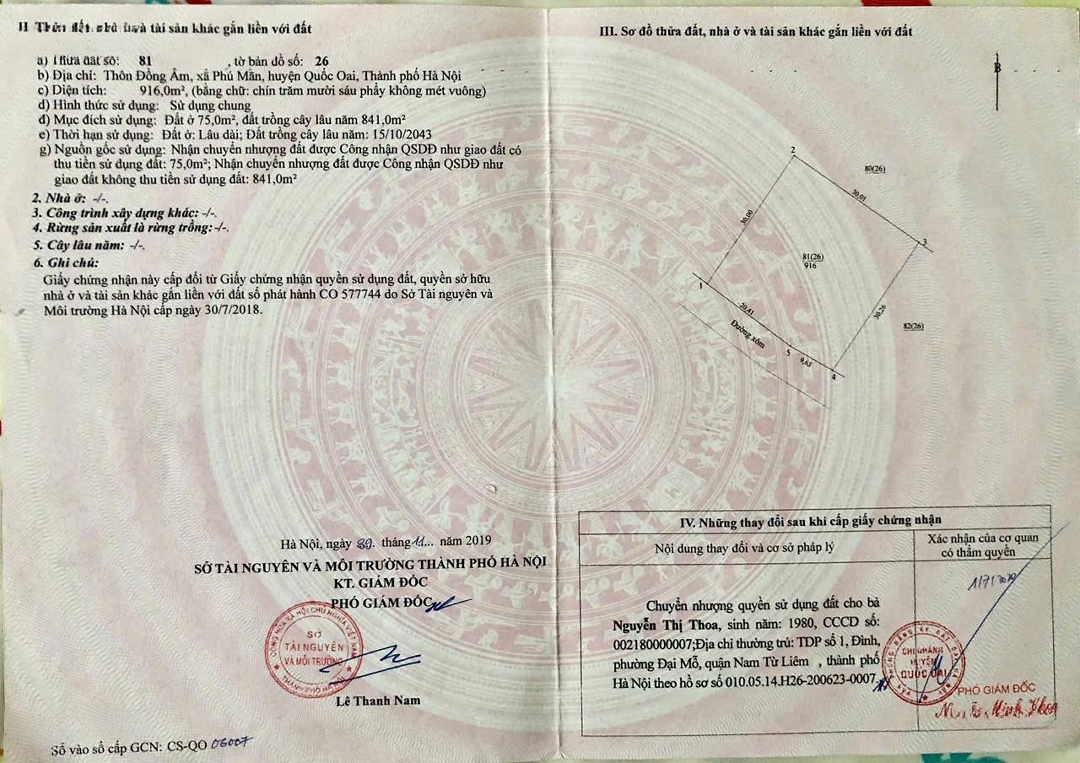 II Thửa đất, nhà ở và tài sản khác gắn liền với đất
a) Thửa đất số: 81 , tờ bản đồ số: 26
b) Địa chỉ: Thôn Đồng Âm, xã Phú Mãn, huyện Quốc Oai, Thành phố Hà Nội
c) Diện tích: 916,0m², (bằng chữ: chín trăm mười sáu phẩy không mét vuông)
d) Hình thức sử dụng: Sử dụng chung
đ) Mục đích sử dụng: Đất ở 75,0m², đất trồng cây lâu năm 841,0m²
e) Thời hạn sử dụng: Đất ở: Lâu dài; Đất trồng cây lâu năm: 15/10/2043
g) Nguồn gốc sử dụng: Nhận chuyển nhượng đất được Công nhận QSDĐ như giao đất có
thu tiền sử dụng đất: 75,0m²; Nhận chuyển nhượng đất được Công nhận QSDĐ như
giao đất không thu tiền sử dụng đất: 841,0m²
2. Nhà ở: -/-.
3. Công trình xây dựng khác: -/-.
4. Rừng sản xuất là rừng trồng:-/-.
5. Cây lâu năm: -/-.
6. Ghi chú:
Giấy chứng nhận này cấp đổi từ Giấy chứng nhận quyền sử dụng đất, quyền sở hữu
nhà ở và tài sản khác gắn liền với đất số phát hành CO 577744 do Sở Tài nguyên và
Môi trường Hà Nội cấp ngày 30/7/2018.
Hà Nội, ngày 29. tháng 11... năm 2019
SỞ TÀI NGUYÊN VÀ MÔI TRƯỜNG THÀNH PHỐ HÀ NỘI
KT. GIÁM ĐỐC
PHÓ GIÁM ĐỐC
CỘNG HÒA XÃ HỘI CHỦ NGHĨA VIỆT NAM
SỞ
TÀI NGUYÊN
VÀ MÔI TRƯỜNG
THÀNH PHỐ HÀ NỘI
Lê Thanh Nam
Số vào sổ cấp GCN: CS-QO 06007
III. Sơ đồ thửa đất, nhà ở và tài sản khác gắn liền với đất
B
2
80(26)
30.01
30.00
3
81(26)
916
1
20.41
30.26
Đường xóm
82(26)
5
9.63
4
IV. Những thay đổi sau khi cấp giấy chứng nhận
Nội dung thay đổi và cơ sở pháp lý
Xác nhận của cơ quan
có thẩm quyền
Chuyển nhượng quyền sử dụng đất cho bà
Nguyễn Thị Thoa, sinh năm: 1980, CCCD số:
002180000007;Địa chỉ thường trú: TDP số 1, Đình,
phường Đại Mỗ, quận Nam Từ Liêm , thành phố
Hà Nội theo hồ sơ số 010.05.14.H26-200623-0007.
CHI NHÁNH
HUYỆN
QUỐC OAI
PHÓ GIÁM ĐỐC